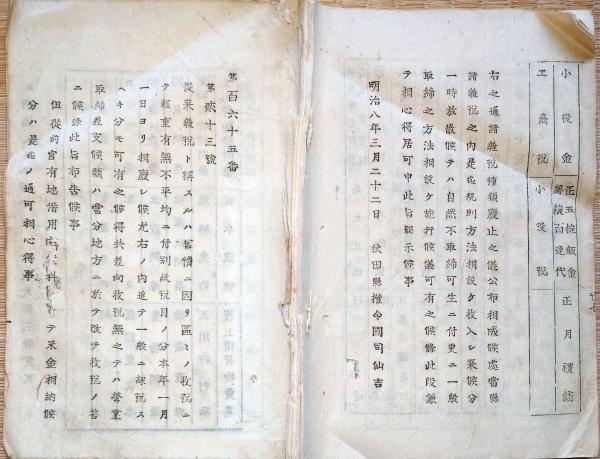 小役金
正五椀飯金
正月禮錢
工商税
小役税
右之通諸雜税種類廢止之儀公布相成候處當縣
諸雜税之内是迄規則方法相設ケ收入シ來候分
一時放散候テハ自然不取締可生ニ付更ニ一般
取締之方法相設ケ施行候儀可有之候條此段兼
テ相心得居可申此旨諭示候事
明治八年三月二十二日 秋田縣權令國司仙吉
第百六十五番
第貳十三號
從來雜税ト稱スルハ舊慣ニ因リ區々ノ收税ニ
テ輕重有無不平均ニ付別紙税目ノ分本年一月
一日ヨリ相廢シ候尤右ノ内追テ一般ニ課税ス
ヘキ分モ可有之候得共差向收税無之テハ營業
取締差支候類ハ當分地方ニ於テ改テ收税ノ筈
ニ候條此旨布告候事
但從前官有地借用 料 テ米金相納候
分ハ是迄ノ通可相心得事